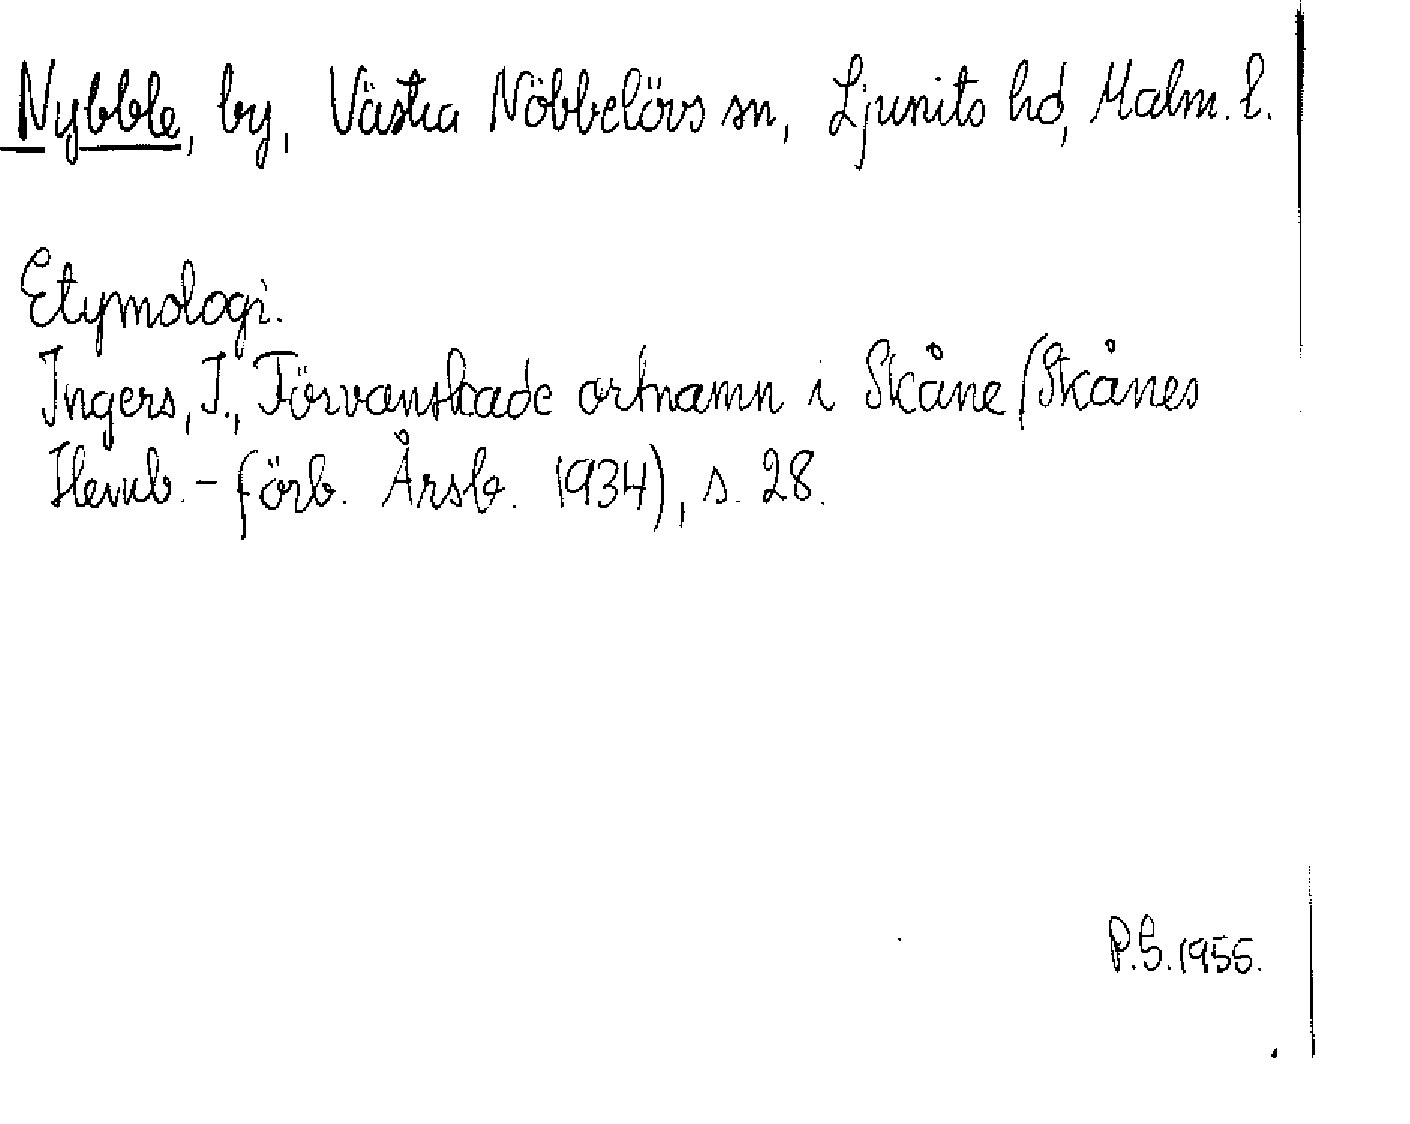 Nybble, by, Västra Nöbbelövs sn, Ljunits hd, Malm. l.
Etymologi.
Ingers, I., Förvanskade ortnamn i Skåne (Skånes
Hemb.-förb. Årsb. 1934), s. 28.
P.S. 1956.